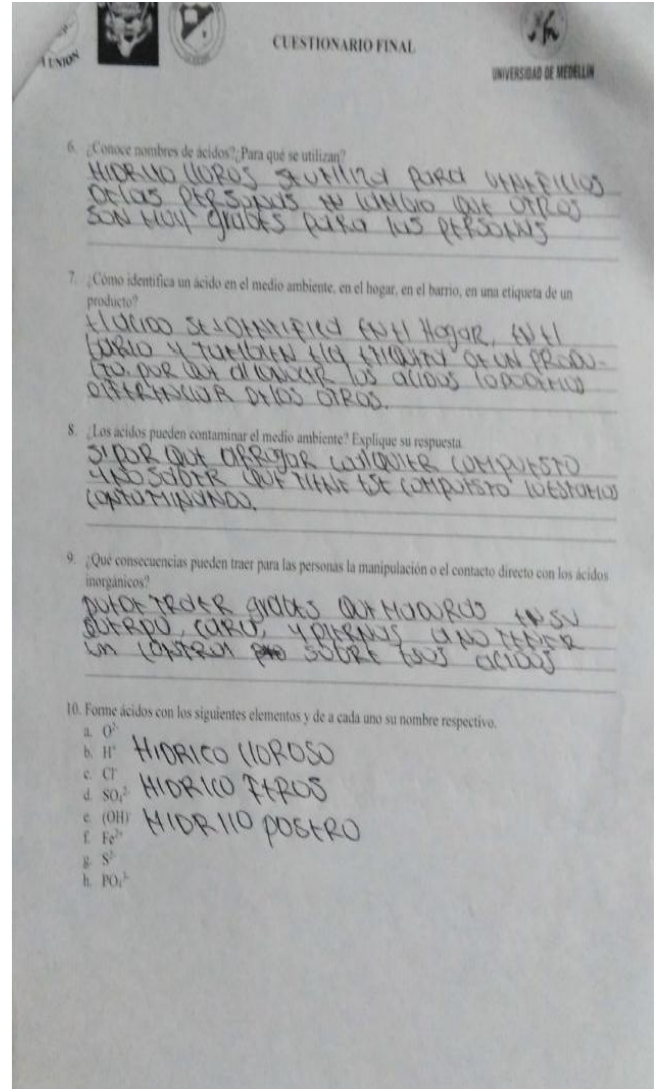 A UNION
CUESTIONARIO FINAL
UNIVERSIDAD DE MEDELLIN
6. ¿Conoce nombres de ácidos? ¿Para qué se utilizan?
HIDRIIO CLOROS SE UTILIZA PARA BENEFICIOS
DE LAS PERSONAS EN CAMBIO QUE OTROS
SON MUY grabes para las PERSONAS
7. ¿Cómo identifica un ácido en el medio ambiente, en el hogar, en el barrio, en una etiqueta de un
producto?
El acido SE IDENTIFICA EN El HogaR, EN El
baRIO Y TAMBIEN EN ETIQUETA DE UN PRODU-
CTO. POR QUE al CONOCER los acidos lo PODEMOS
DIFERENCIAR DE LOS OTROS.
8. ¿Los acidos pueden contaminar el medio ambiente? Explique su respuesta
SI POR QUE ARROJAR CUALQUIER COMPUESTO
Y NO SABER QUE TIENE ESE COMPUESTO lo ESTAMOS
CONTAMINANDO.
9. ¿Qué consecuencias pueden traer para las personas la manipulación o el contacto directo con los ácidos
inorgánicos?
PUEDE TRAER grabes QUEMADURAS EN SU
CUERPO, CARA, Y PIERNAS NO TENER
UN CONTROL SOBRE ESOS ACIDOS
10. Forme ácidos con los siguientes elementos y de a cada uno su nombre respectivo.
a. O²⁻
b. H⁺ HIDRICO CLOROSO
c. Cl⁻
d. SO₄²⁻ HIDRICO FEROS
e. (OH) HIDRIIO POSERO
f. Fe²⁺
g. S²⁻
h. PO₄³⁻